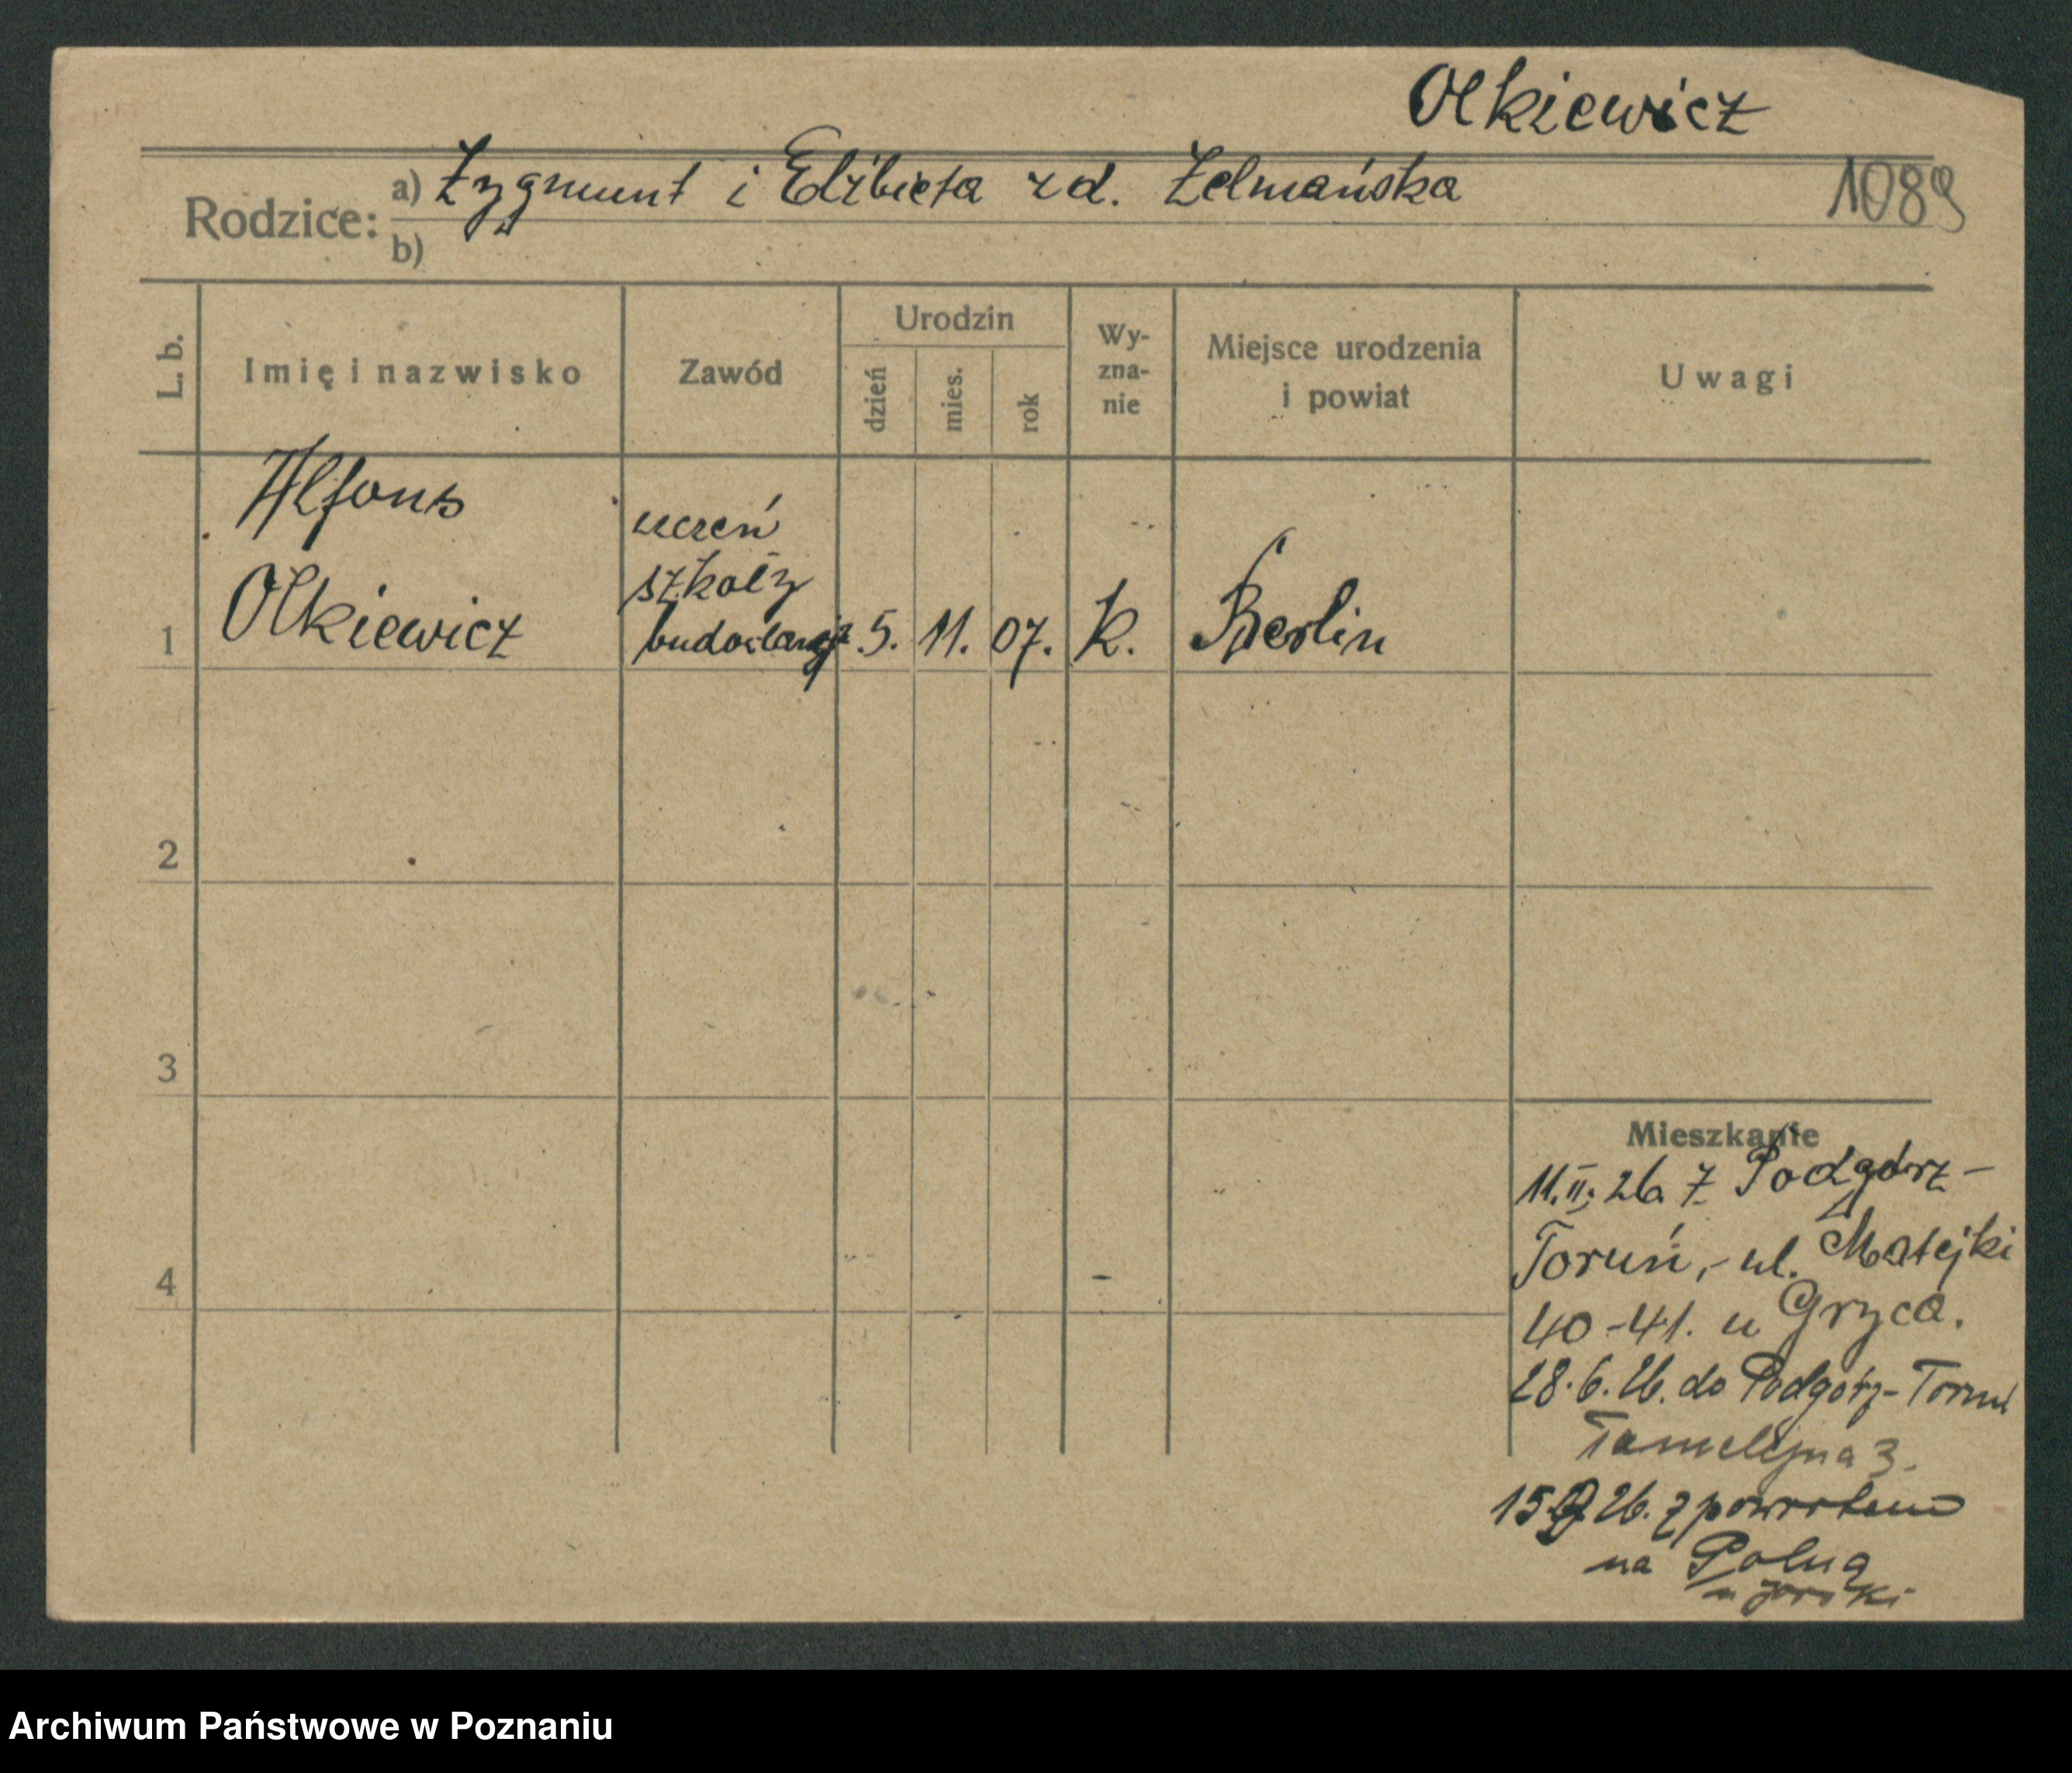 Olkiewicz
1089
Rodzice: a) Zygmunt i Elżbieta zd. Zelmańska
b)
L. b.
Imię i nazwisko
Zawód
Urodzin
dzień
mies.
rok
Wy-
zna-
nie
Miejsce urodzenia
i powiat
Uwagi
1
Alfons
Olkiewicz
uczeń
szkoły
5. 11. 07. k. Berlin
2
3
4
Mieszkanie
11. II. 26. z Podgórz-
Toruń, - ul. Matejki
40-41. u Gryca.
28. 6. 26. do Podgórz-Toruń
3.
15 26. z powrotem
na Polną
Archiwum Państwowe w Poznaniu